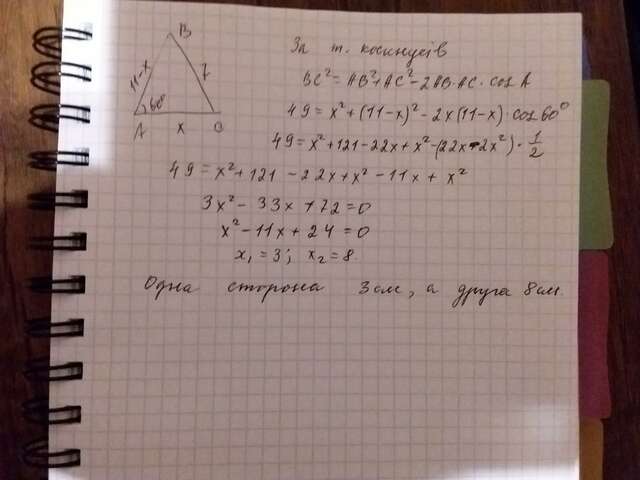 B
11-x
7
60°
A
x
C
За т. косинусів
BC² = AB²+AC²-2AB·AC·cos A
49 = x²+(11-x)² - 2x(11-x)·cos 60°
49 = x²+121-22x+x²-(22x-2x²)·1/2
49 = x²+121 - 22x+x² - 11x + x²
3x² - 33x + 72 = 0
x² - 11x + 24 = 0
x₁ = 3; x₂ = 8.
Одна сторона 3 см, а друга 8 см.